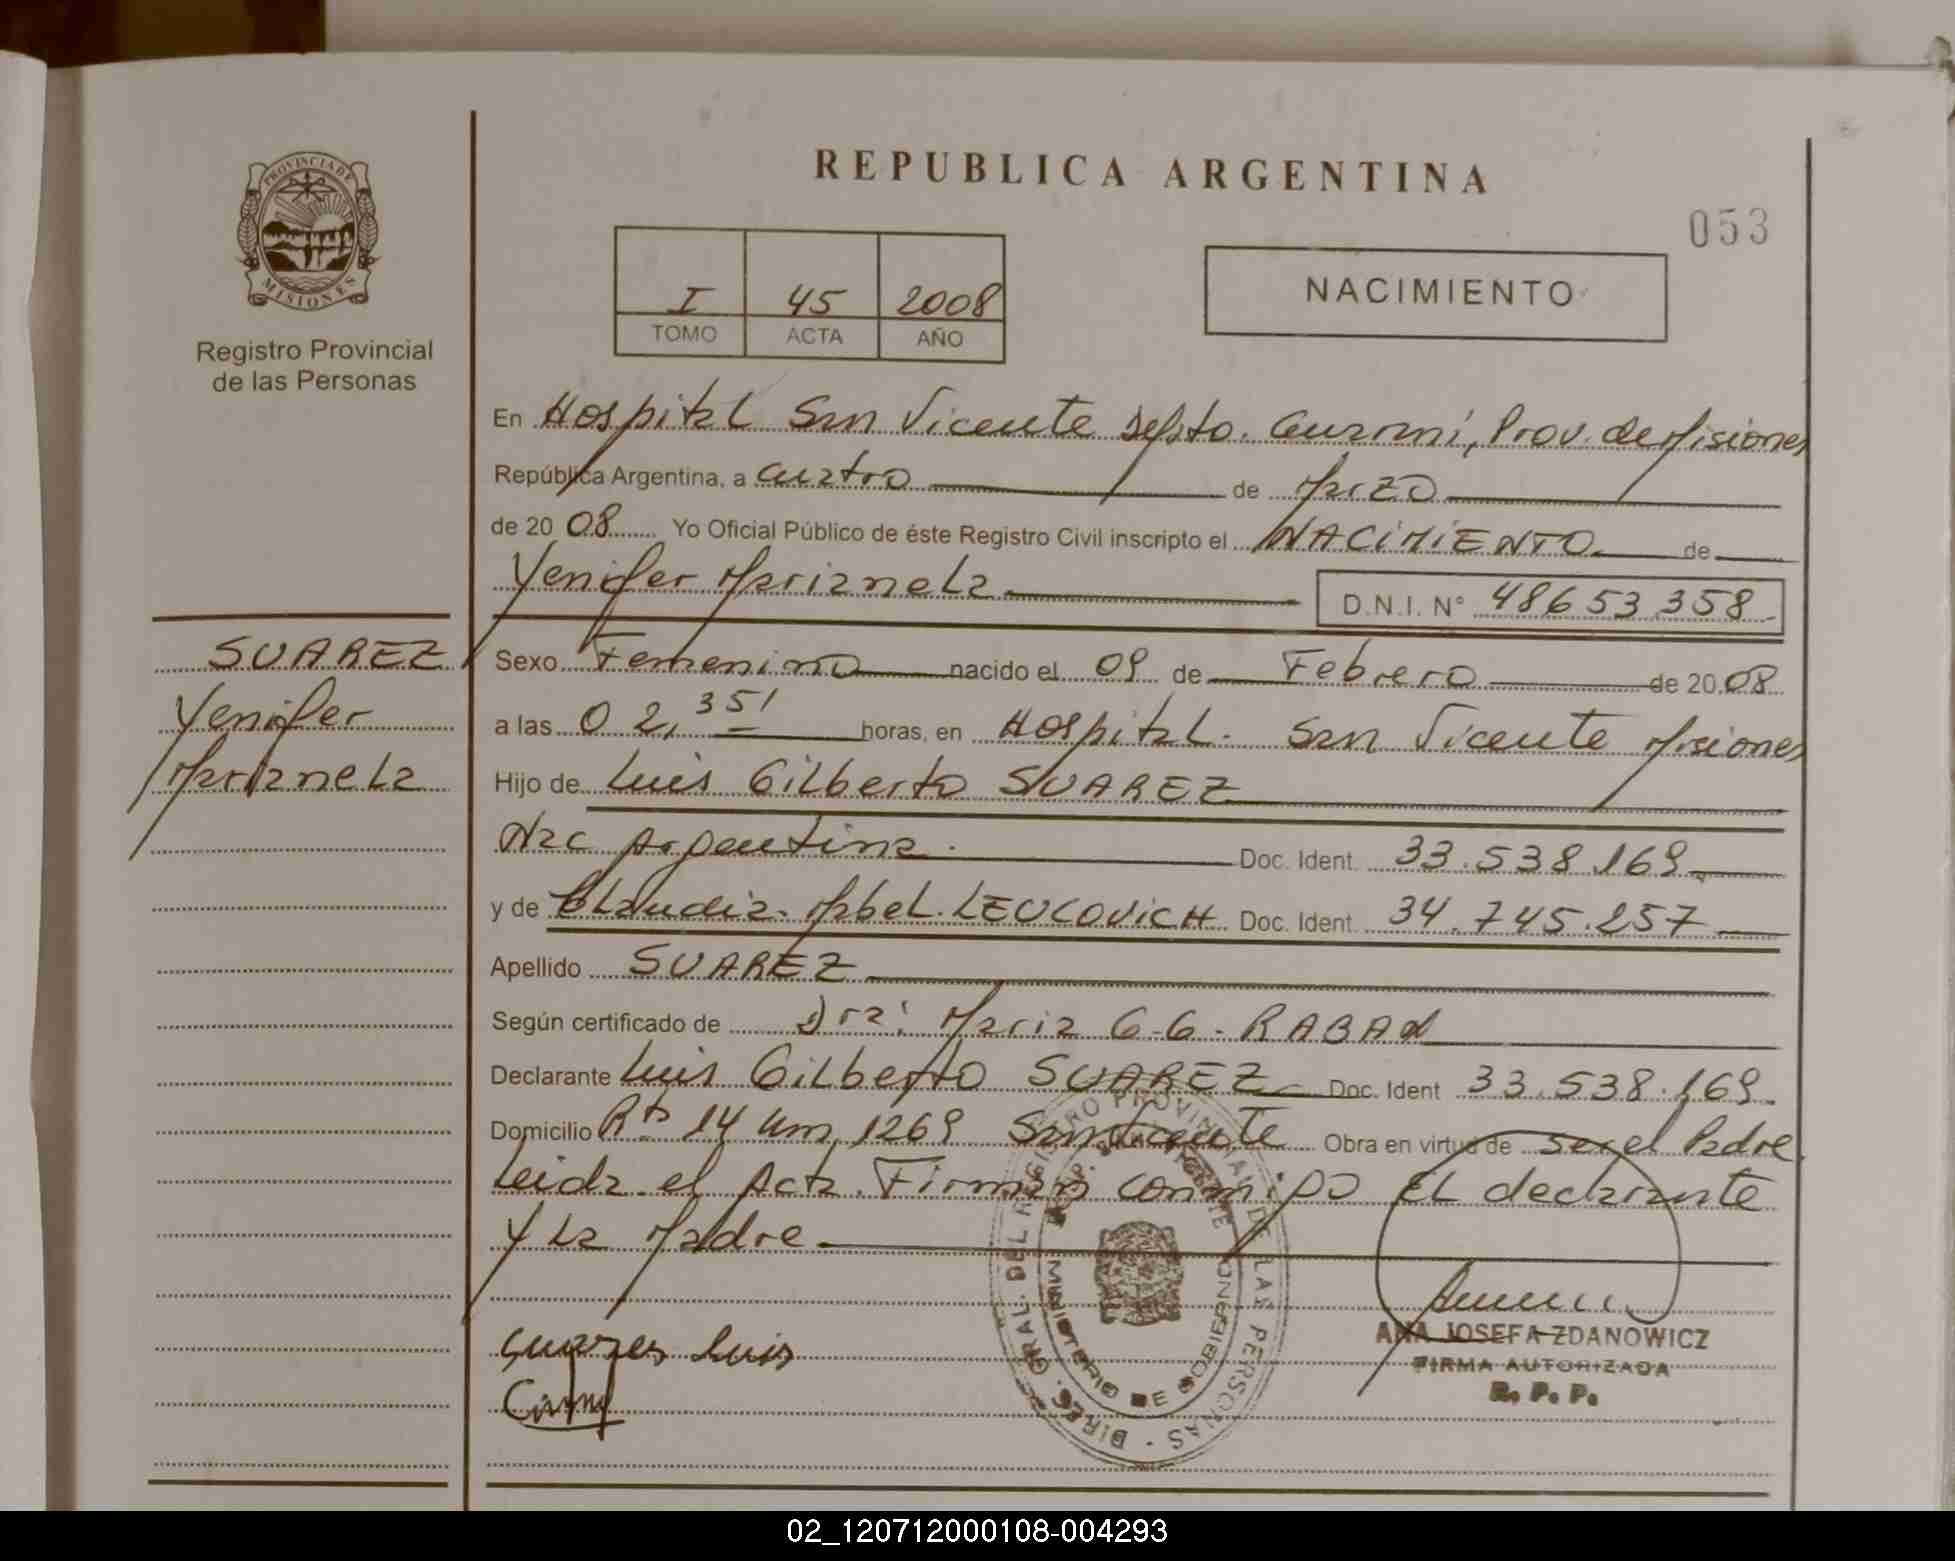 REPUBLICA ARGENTINA
053
PROVINCIA DE
MISIONES
Registro Provincial
de las Personas
I 45 2008
TOMO ACTA AÑO
NACIMIENTO
En Hospital San Vicente Depto. Guarani, Prov. de Misiones
República Argentina, a cuatro de Marzo
de 20 08 Yo Oficial Público de éste Registro Civil inscripto el NACIMIENTO de
Yenifer Marianela D.N.I. N° 48653.358
SUAREZ
Yenifer
Marianela
Sexo Femenino nacido el 09 de Febrero de 20 08
a las 02,35' horas, en Hospital. San Vicente Misiones
Hijo de Luis Gilberto SUAREZ
Nac Argentina. Doc. Ident. 33.538.169
y de Claudia Mabel. LEUCOVICH Doc. Ident. 34.745.257
Apellido SUAREZ
Según certificado de Dra: Maria G.G. RABAN
Declarante Luis Gilberto SUAREZ Doc. Ident 33.538.169
Domicilio Rta 14 Km 1269 San Vicente Obra en virtud de ser el Padre
Leida el Acta. Firman conmigo EL declarante
y La Madre
Suares Luis
DIREC. GRAL. DEL REGISTRO PROVINCIAL DE LAS PERSONAS
MINISTERIO DE GOBIERNO
ANA JOSEFA ZDANOWICZ
FIRMA AUTORIZADA
R. P. P.
02_120712000108-004293